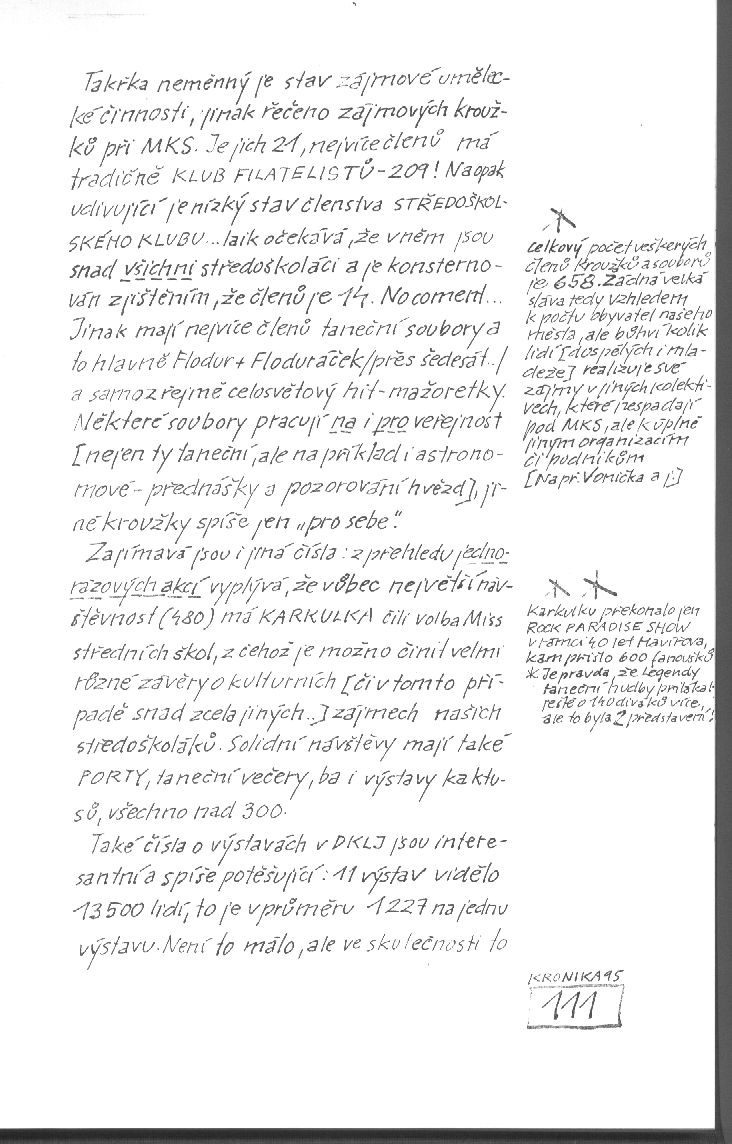 Takřka neměnný je stav zájmové umělec-
ké činnosti, jinak řečeno zájmových krouž-
ků při MKS. Je jich 21, nejvíce členů má
tradičně KLUB FILATELISTŮ - 209! Naopak
udivující je nízký stav členstva STŘEDOŠKOL-
SKÉHO KLUBU... laik očekává, že v něm jsou
snad všichni středoškoláci a je konsterno-
ván zjištěním, že členů je 14. No coment...
Jinak mají nejvíce členů taneční soubory a
to hlavně Flodur + Floduráček /přes šedesát../
a samozřejmě celosvětový hit - mažoretky.
Některé soubory pracují na i pro veřejnost
[nejen ty taneční, ale na příklad i astrono-
mové - přednášky a pozorování hvězd], ji-
né kroužky spíše jen "pro sebe".
Zajímavá jsou i jiná čísla: z přehledu jedno-
rázových akcí vyplývá, že vůbec největší náv-
štěvnost (480) má KARKULKA čili volba Miss
středních škol, z čehož je možno činit velmi
různé závěry o kulturních [či v tomto pří-
padě snad zcela jiných..] zájmech našich
středoškoláků. Solidní návštěvy mají také
PORTY, taneční večery, ba i výstavy kaktu-
sů, všechno nad 300.
Také čísla o výstavách v DKLJ jsou intere-
santní a spíše potěšující: 11 výstav vidělo
13 500 lidí, to je v průměru 1 227 na jednu
výstavu. Není to málo, ale ve skutečnosti to
*
Celkový počet veškerých
členů kroužků a souborů
je 658. Žádná velká
sláva tedy vzhledem
k počtu obyvatel našeho
města, ale bůhví kolik
lidí [dospělých i mlá-
deže] realizuje své
zájmy v jiných kolekti-
vech, které nespadají
pod MKS, ale k úplně
jiným organizacím
či podnikům
[Např. Vonička aj.]
* *
Karkulku překonalo jen
ROCK PARADISE SHOW
v rámci 40 let Havířova,
kam přišlo 600 fanoušků
* Je pravda, že Legendy
taneční hudby přilákal
ještě o 140 diváků více,
ale to byla 2 představení!
KRONIKA 95
111